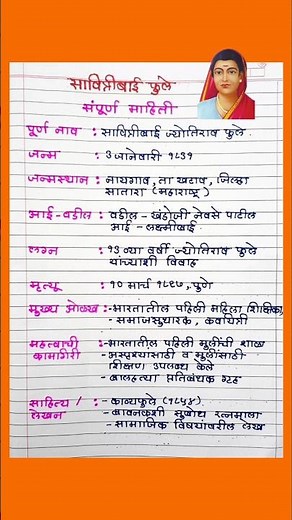 सावित्रीबाई फुले
संपूर्ण माहिती
पूर्ण नाव : सावित्रीबाई ज्योतिराव फुले.
जन्म : ३ जानेवारी १८३१
जन्मस्थान : नायगाव, ता खटाव, जिल्हा
सातारा (महाराष्ट्र)
आई-वडील : वडील - खंडोजी नेवसे पाटील
आई - लक्ष्मीबाई
लग्न : १३ व्या वर्षी ज्योतिराव फुले
यांच्याशी विवाह
मृत्यू : १० मार्च १८९७, पुणे
मुख्य ओळख :- भारतातील पहिली महिला शिक्षिका,
- समाजसुधारक, कवयित्री
महत्वाची :- भारतातील पहिली मुलींची शाळा
कामगिरी - अस्पृश्यासाठी व मुलींसाठी
शिक्षण उपलब्ध केले
- बालहत्या प्रतिबंधक गृह
साहित्य / :- काव्यफुले (१८५४)
लेखन - बावनकशी सुबोध रत्नमाला
- सामाजिक विषयांवरील लेख